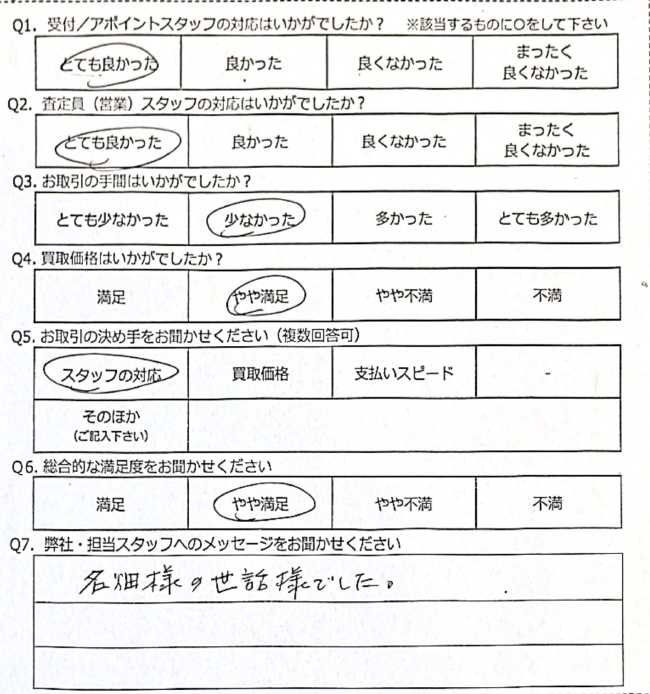 Q1. 受付/アポイントスタッフの対応はいかがでしたか? ※該当するものに○をして下さい
とても良かった 良かった 良くなかった まったく良くなかった
Q2. 査定員(営業)スタッフの対応はいかがでしたか?
とても良かった 良かった 良くなかった まったく良くなかった
Q3. お取引の手間はいかがでしたか?
とても少なかった 少なかった 多かった とても多かった
Q4. 買取価格はいかがでしたか?
満足 やや満足 やや不満 不満
Q5. お取引の決め手をお聞かせください(複数回答可)
スタッフの対応 買取価格 支払いスピード -
そのほか
(ご記入下さい)
Q6. 総合的な満足度をお聞かせください
満足 やや満足 やや不満 不満
Q7. 弊社・担当スタッフへのメッセージをお聞かせください
名畑様の世話様でした。